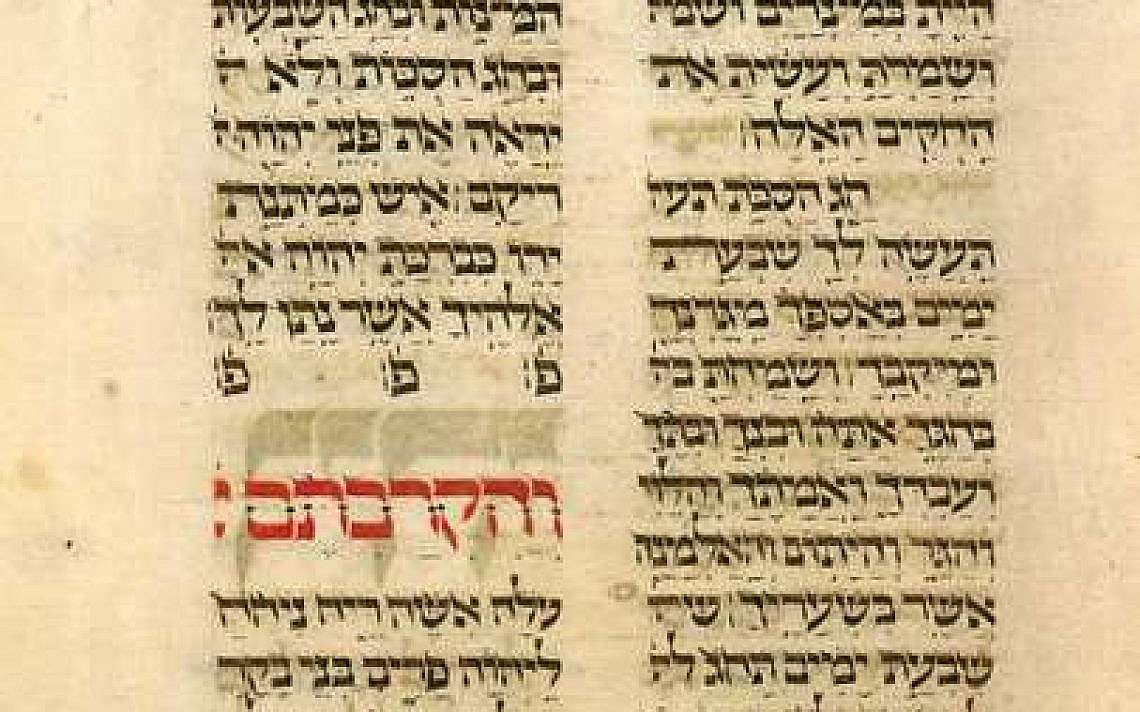 היית במצרים
ושמרת ועשית את
החקים האלה׃
חג הסכת תעש
תעשה לך שבעת
ימים באספך מגרנך
ומיקבך׃ ושמחת
בחגך אתה ובנך ובתך
ועבדך ואמתך והלוי
והגר והיתום והאלמנה
אשר בשעריך׃
שבעת ימים תחג
המצות ובחג השבעות
ובחג הסכות ולא
יראה את פני יהוה
ריקם׃ איש כמתנת
ידו כברכת יהוה
אלהיך אשר נתן לך׃
פ פ פ
והקרבתם
עלה אשה ריח ניחח
ליהוה פרים בני בקר